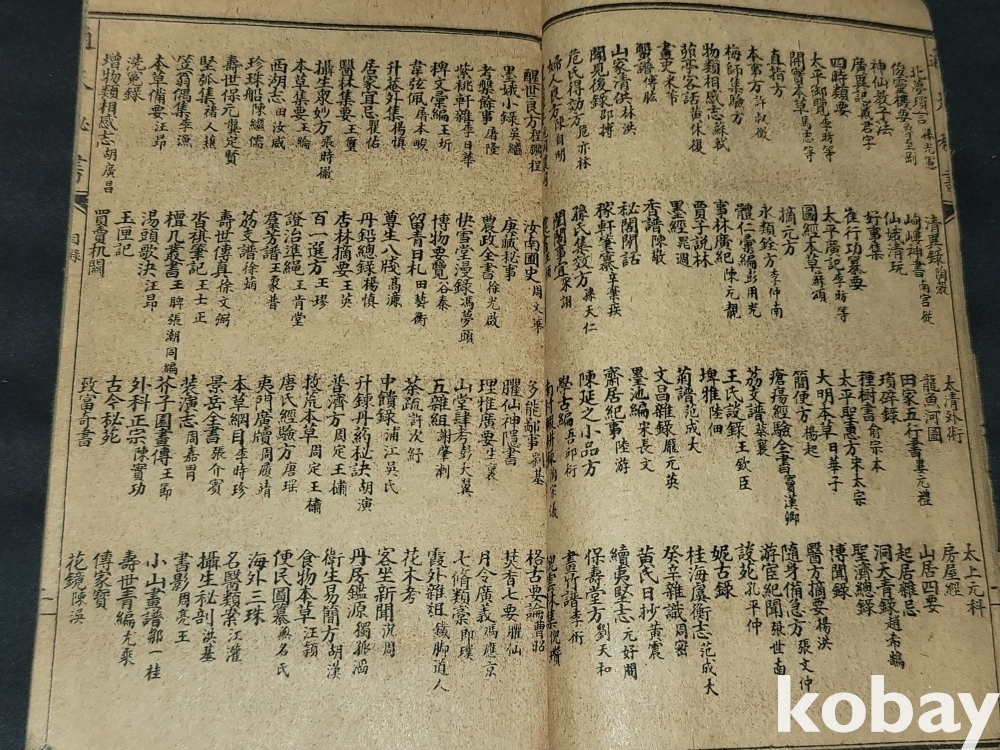 北夢瑣言 孫光憲
神仙教子法
廣輿記 戴君孚
四時類要
太平御覽 李昉等
開寶本草 馬志等
直指方
本事方 許叔微
梅師集驗方
物類相感志 蘇軾
茆亭客話 黃休復
畫史 米芾
蟹譜 傅肱
山家清供 林洪
聞見後錄 邵搏
危氏得効方 危亦林
婦人良方 陳自明
清異錄 陶穀
峋嶁神書 南宮從
仙娥清玩
好事集
崔行功纂要
太平廣記 李昉等
圖經本草 蘇頌
摘元方
永類鈐方 李仲南
體仁彙編 彭用光
事林廣記 陳元靚
賈子說林
墨經 晁迥
香譜 陳敬
秘閣閒話
稼軒筆纂 辛棄疾
孫氏集效方 孫天仁
閨閣事宜
太清外術
龍魚河圖
田家五行書 婁元禮
瑣碎錄
種樹書 俞宗本
太平聖惠方 宋太宗
大明本草 日華子
簡便方 楊起
瘡瘍經驗全書 竇漢卿
荔支譜 蔡襄
王氏談錄 王欽臣
埤雅 陸佃
菊譜 范成大
文昌雜錄 龐元英
墨池編 朱長文
齋居紀事 陸游
陳延之小品方
學古編 吾邱衍
太上元科
房屋經
山居四要
起居雜忌
洞天青錄 趙希鵠
聖濟總錄
博聞錄
醫方摘要 楊洪
隨身備急方 張文仲
游宦紀聞 張世南
談苑 孔平仲
妮古錄
桂海虞衡志 范成大
癸辛雜識 周密
黃氏日抄 黃震
續夷堅志 元好問
保壽堂方 劉天和
畫竹譜 李衎
醒世良方 程鵬程
墨娥小錄 吳繼
考槃餘事 屠隆
紫桃軒雜 李日華
稗史彙編 王圻
韋弦佩 屠本畯
升菴外集 楊慎
居家宜忌 瞿佑
醫林集要 王璽
攝生衆妙方 張時徹
本草集要 王綸
西湖志 田汝成
珍珠船 陳繼儒
壽世保元 龔定賢
堅瓠集 褚人穫
笠翁偶集 李漁
本草備要 汪昂
洗冤錄
增物類相感志 胡廣昌
汝南圃史 周文華
庚辭秘事
農政全書 徐光啟
快雪堂漫錄 馮夢頭
博物要覽 谷泰
留青日札 田藝衡
尊生八牋 高濂
丹鉛總錄 楊慎
杏林摘要 王英
百一選方 王璆
證治準繩 王肯堂
羣芳譜 王象晉
荔支譜 徐𤊹
壽世傳真 徐文弼
古棋筆記 王士正
檀几叢書 王晫 張潮同編
湯頭歌決 汪昂
玉匣記
買賣机關
多能鄙事 劉基
臞仙神隱書
理推廣要 生褱
山堂肆考 彭大翼
五雜組 謝肇淛
茶疏 許次紓
中饋錄 浦江吳氏
升鍊丹葯秘訣 胡演
普濟方 周定王橚
救荒本草 周定王橚
唐氏經驗方 唐瑶
夷門廣牘 周履靖
本草綱目 李時珍
景岳全書 張介賓
裝潢志 周嘉胄
芥子園畫傳 王節
外科正宗 陳實功
古今秘苑
致富奇書
格古要論 曹昭
焚香七要 臞仙
月令廣義 馮應京
七脩類稾 郎瑛
霞外雜俎 鐵脚道人
花木考
客坐新聞 沈周
丹房鑑源 獨孤滔
衛生易簡方 胡濙
食物本草 汪穎
便民圖纂 無名氏
海外三珠
名醫類案 江瓘
攝生秘剖 洪基
書影 周亮工
小山畫譜 鄒一桂
壽世青編 尤乘
傳家寶
花鏡 陳淏
目錄
kobay